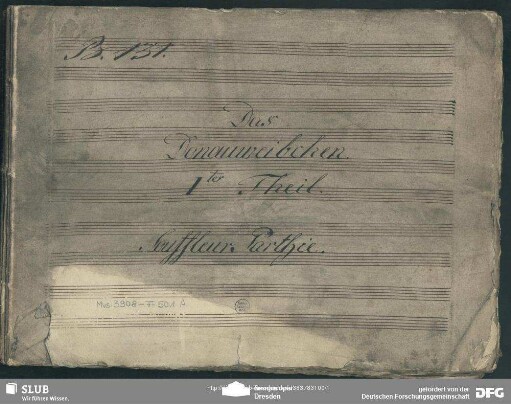 B. 131.
Das
Donauweibchen.
1ter Theil.
Souffleur. Parthie.
Mus 3908-F-501
SLUB
Wir führen Wissen.
Dresden
gefördert von der
Deutschen Forschungsgemeinschaft
DFG